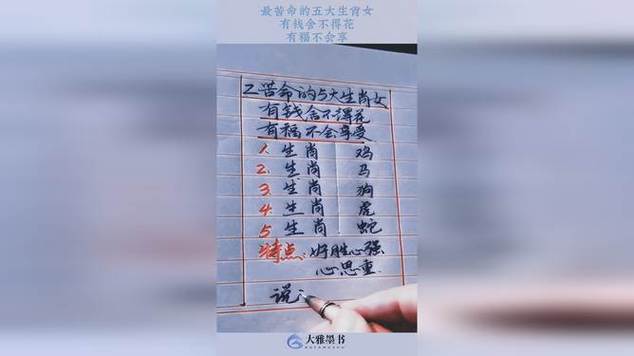 最苦命的五大生肖女
有钱舍不得花
有福不会享
苦命的5大生肖女
有钱舍不得花
有福不会享受
1. 生肖 鸡
2. 生肖 马
3. 生肖 狗
4. 生肖 虎
5. 生肖 蛇
特点:好胜心强
心思重
说
大雅墨书